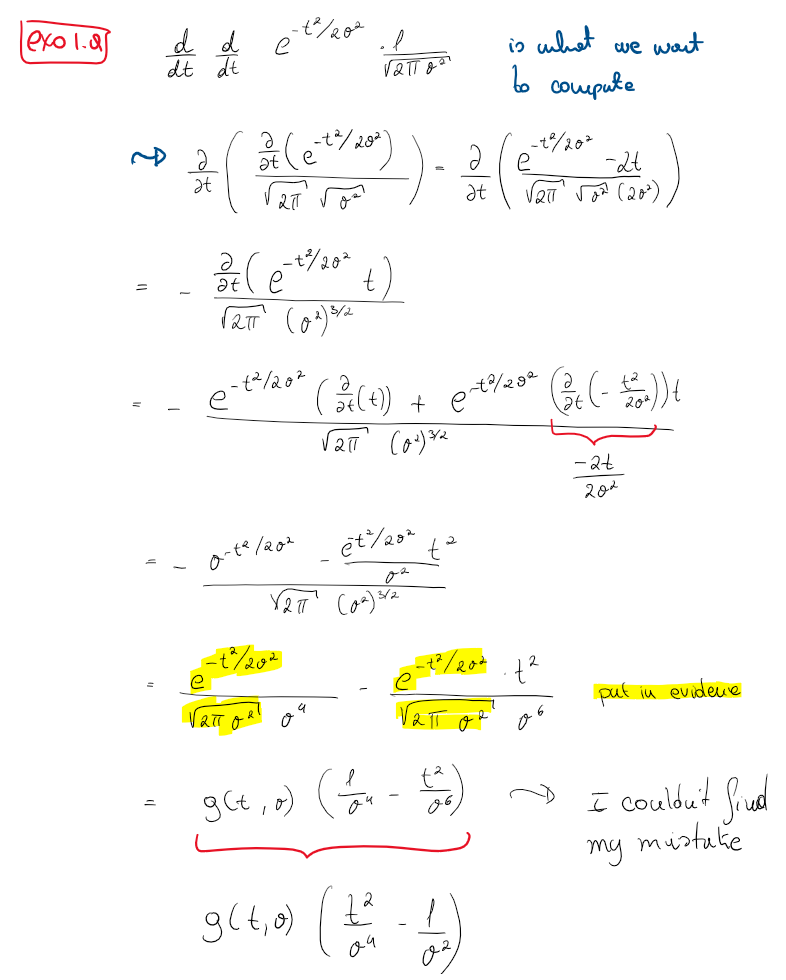 exo 1.2
d/dt d/dt e^{-t²/2σ²} · 1/√(2π σ²) is what we want
to compute
⤳ ∂/∂t ( ∂/∂t(e^{-t²/2σ²}) / (√2π √σ²) ) = ∂/∂t ( e^{-t²/2σ²} -2t / (√2π √σ² (2σ²)) )
= - ∂/∂t( e^{-t²/2σ²} t) / (√2π (σ²)^{3/2})
= - ( e^{-t²/2σ²} (∂/∂t(t)) + e^{-t²/2σ²} (∂/∂t(- t²/2σ²)) t ) / (√2π (σ²)^{3/2})
-2t/2σ²
= - ( σ^{-t²/2σ²} - e^{-t²/2σ²}/σ² t² ) / (√2π (σ²)^{3/2})
= e^{-t²/2σ²} / (√(2π σ²) σ⁴) - e^{-t²/2σ²} · t² / (√(2π σ²) σ⁶) put in evidence
= g(t, σ) (1/σ⁴ - t²/σ⁶) ⤳ I couldn't find
my mistake
g(t, σ) (t²/σ⁴ - 1/σ²)